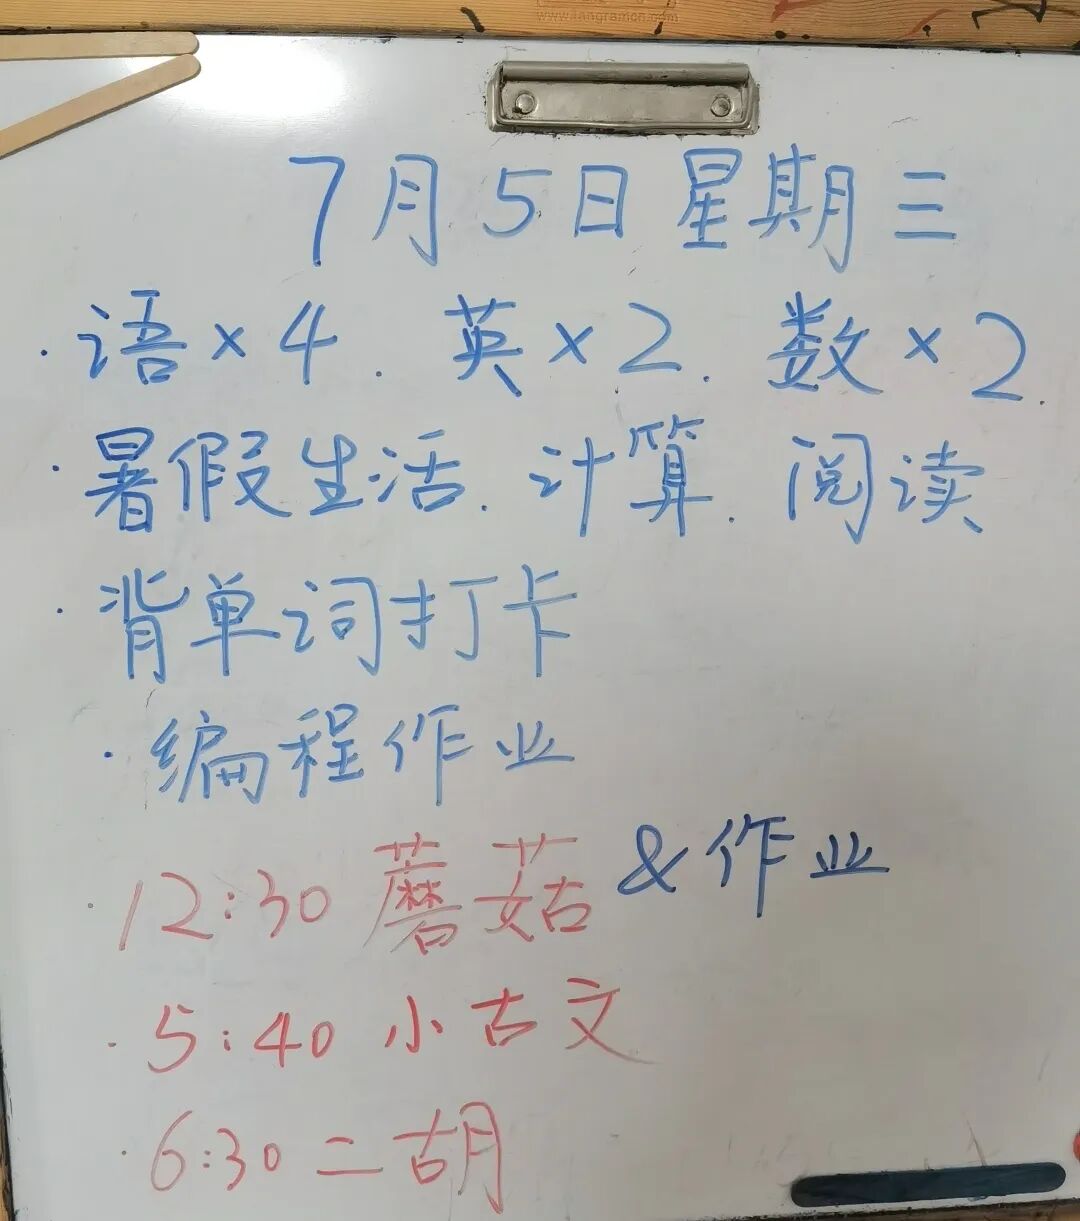 www.tangramcn.com
7月5日星期三
·语×4.英×2.数×2.
·暑假生活.计算.阅读
·背单词打卡
·编程作业
·12:30蘑菇&作业
·5:40小古文
·6:30二胡